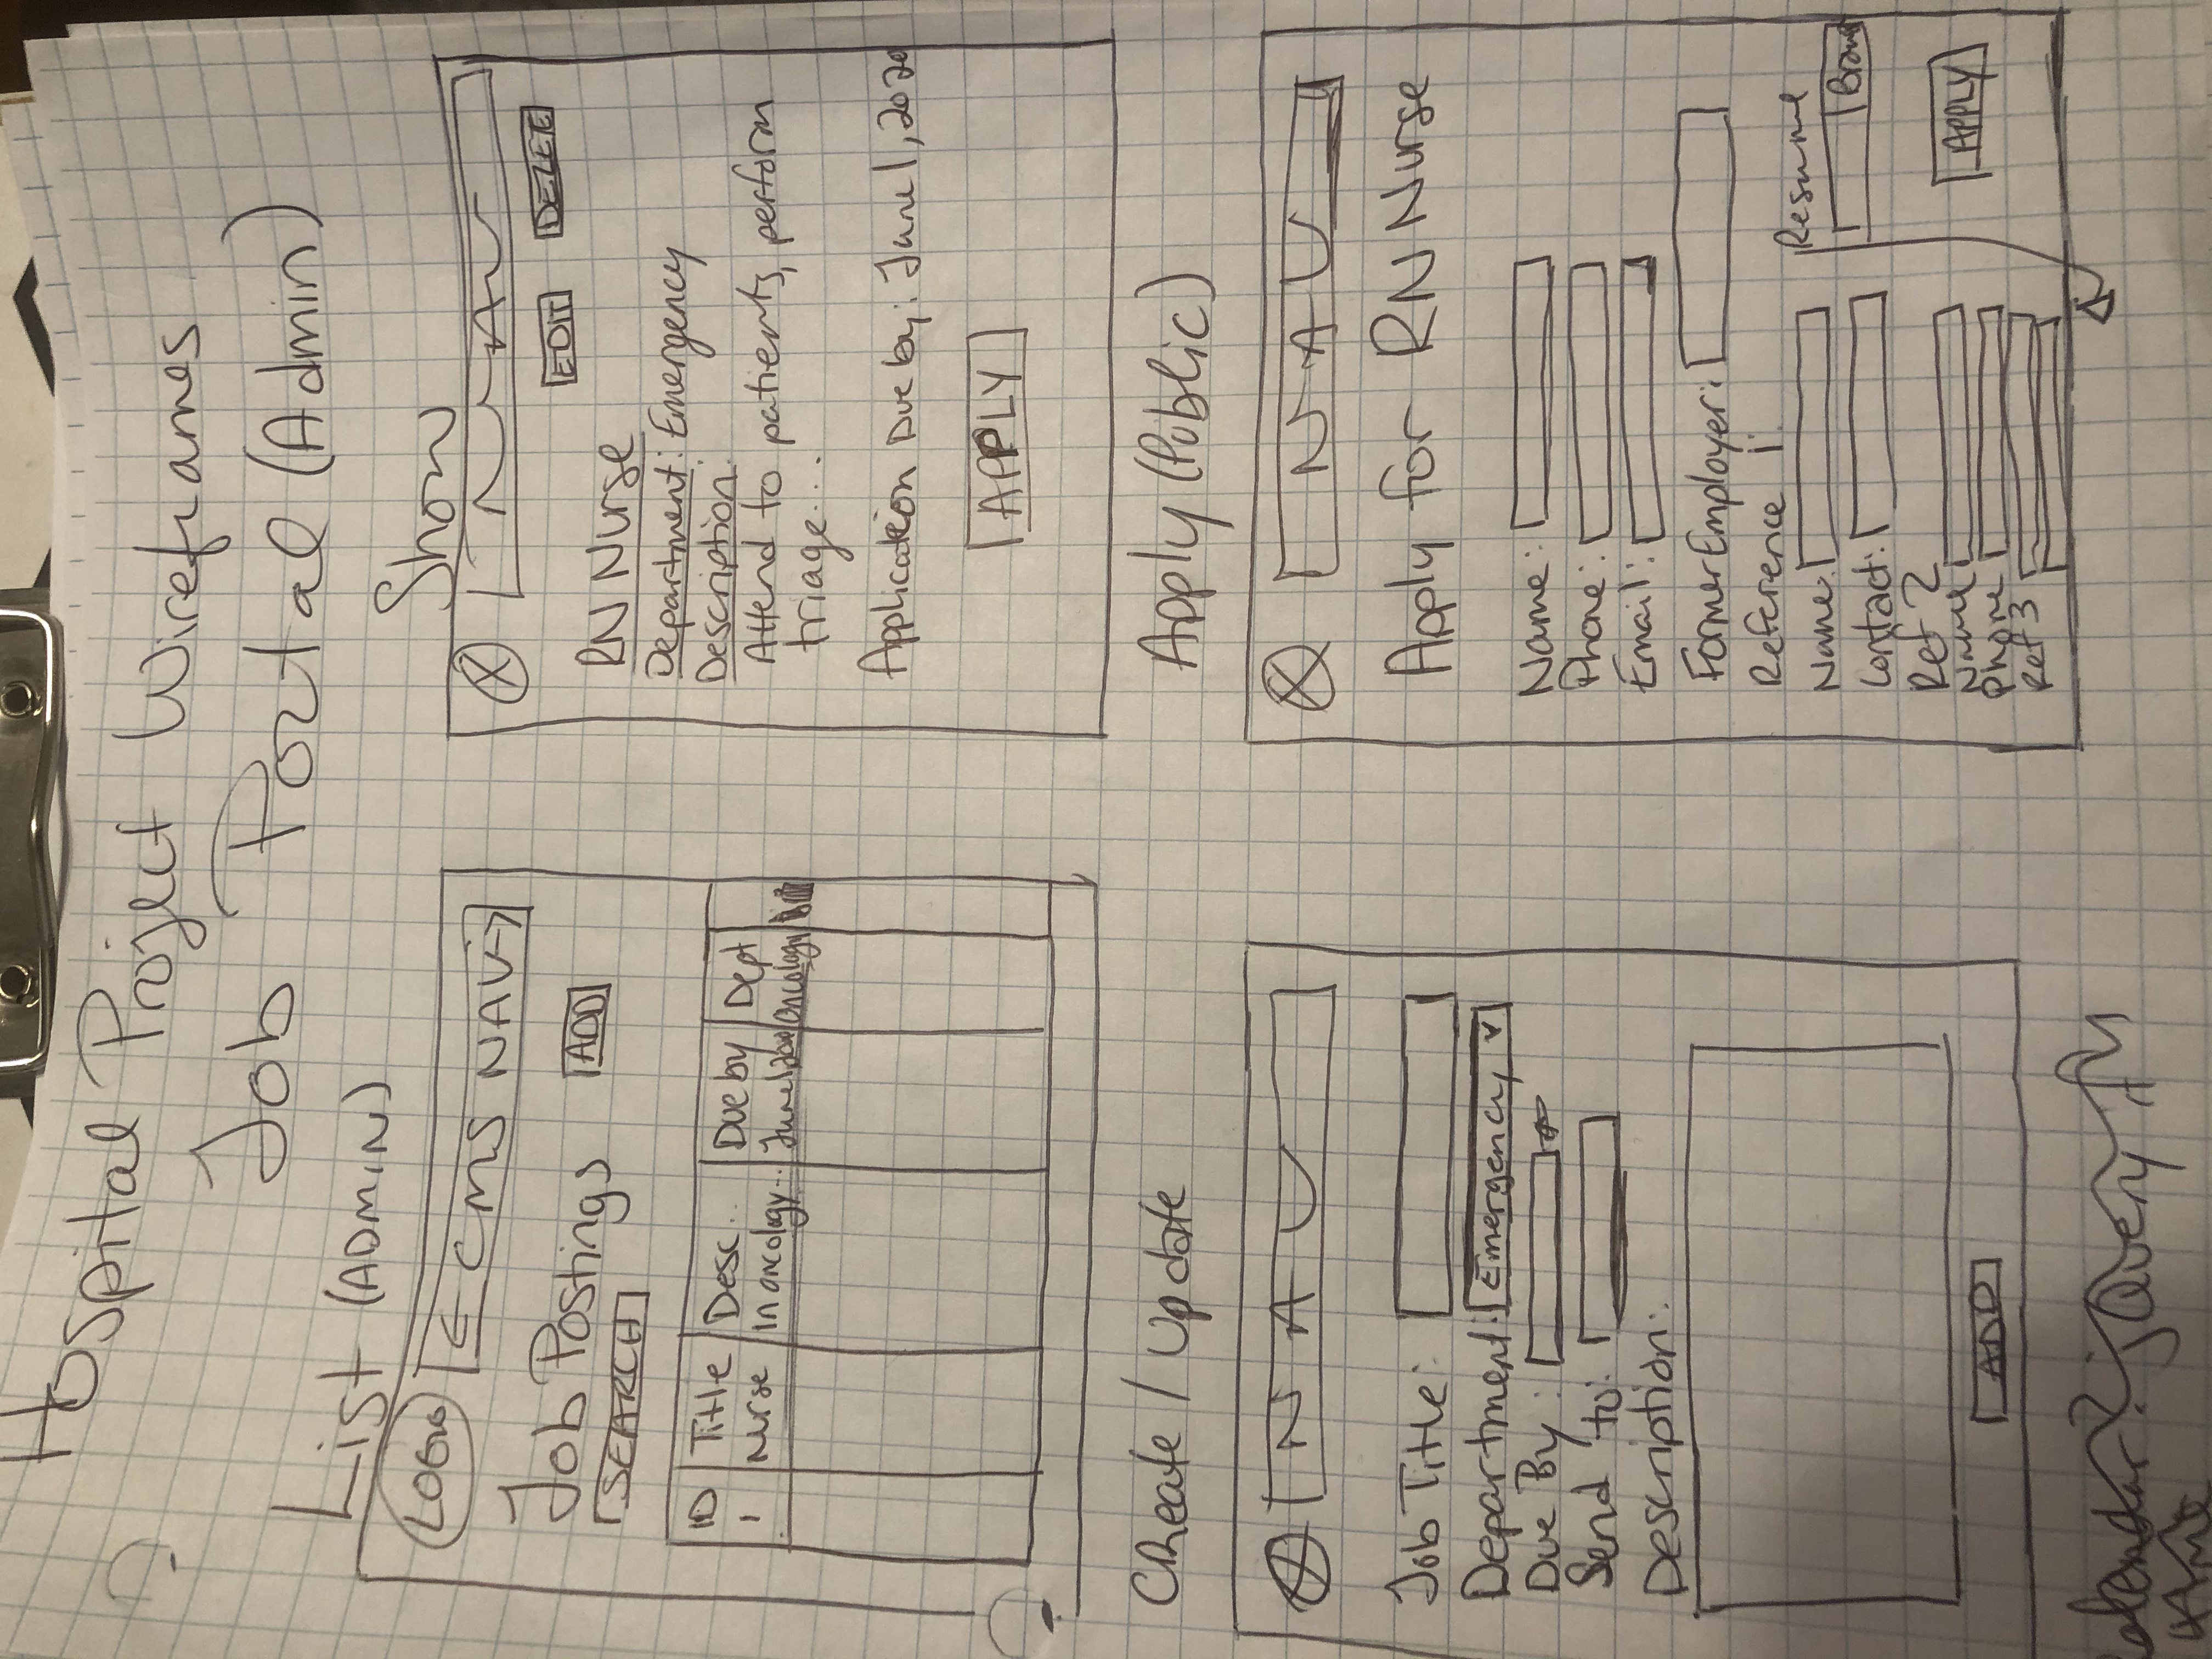 Hospital Project Wireframes
Job Portal (Admin)
List (ADMIN)
LOGO
← CMS NAV →
Job Postings
ADD
SEARCH
ID Title Desc.. Due by Dept
1 Nurse In oncology... June 1 2020 Oncology
Show
NAV
EDIT DELETE
RN Nurse
Department: Emergency
Description:
Attend to patients, perform
triage...
Application Due by: June 1, 2020
APPLY
Create / Update
NAV
Job Title:
Department: Emergency
Due By:
Send to:
Description:
ADD
Apply (Public)
NAV
Apply for RN Nurse
Name:
Phone:
Email:
Former Employer:
Reference 1:
Name:
Contact:
Ref 2
Name
Phone
Ref 3
Resume
APPLY
Calendar? jQuery if
time